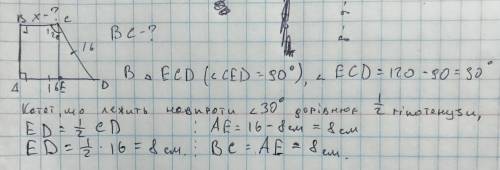 B x-? C
120
16
BC-?
A 16 E D
В △ ECD (∠CED = 90°), ∠ ECD = 120 - 90 = 30°
Катет що лежить навпроти ∠30° дорівнює 1/2 гіпотенузи,
ED = 1/2 CD ; AE = 16 - 8 см = 8 см
ED = 1/2 · 16 = 8 см. ; BC = AE = 8 см.